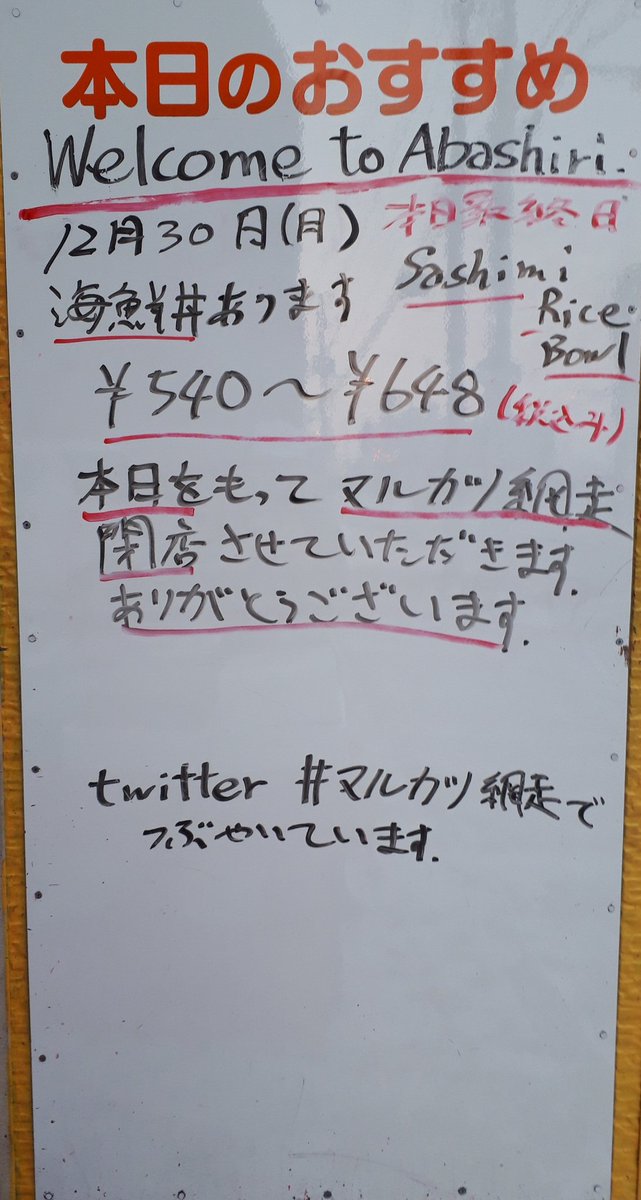 本日のおすすめ
Welcome to Abashiri.
12月30日(月) 本日最終日
海鮮丼あります Sashimi
Rice
Bowl
¥540～¥648(税込み)
本日をもってマルカツ網走
閉店させていただきます.
ありがとうございます.
twitter #マルカツ網走で
つぶやいています.